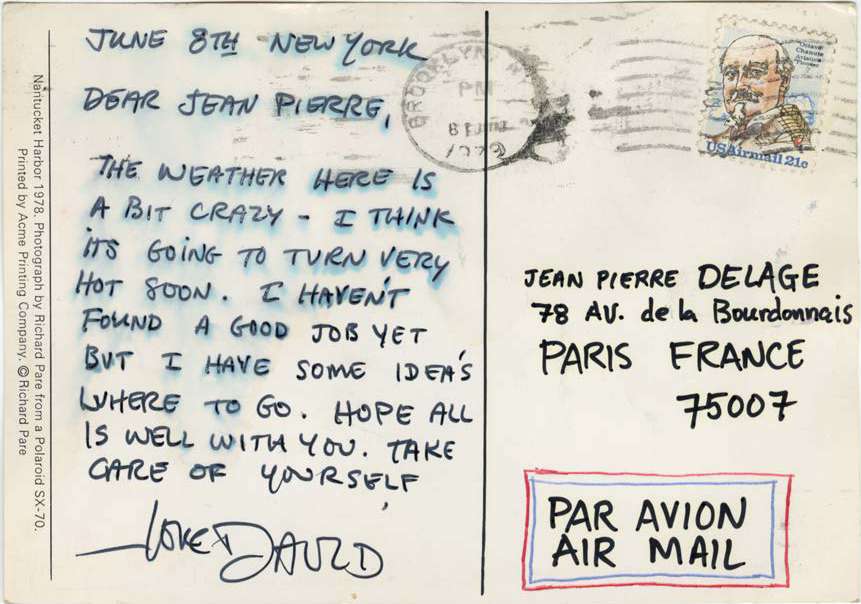 JUNE 8TH NEW YORK
DEAR JEAN PIERRE,
THE WEATHER HERE IS
A BIT CRAZY - I THINK
ITS GOING TO TURN VERY
HOT SOON. I HAVEN'T
FOUND A GOOD JOB YET
BUT I HAVE SOME IDEA'S
WHERE TO GO. HOPE ALL
IS WELL WITH YOU. TAKE
CARE OF YOURSELF,
LOVE DAVID
Nantucket Harbor 1978. Photograph by Richard Pare from a Polaroid SX-70.
Printed by Acme Printing Company. © Richard Pare
BROOKLYN, N
PM
8 JUN
Octave
Chanute
Aviation
Pioneer
USAirmail 21c
JEAN PIERRE DELAGE
78 AV. de la Bourdonnais
PARIS FRANCE
75007
PAR AVION
AIR MAIL